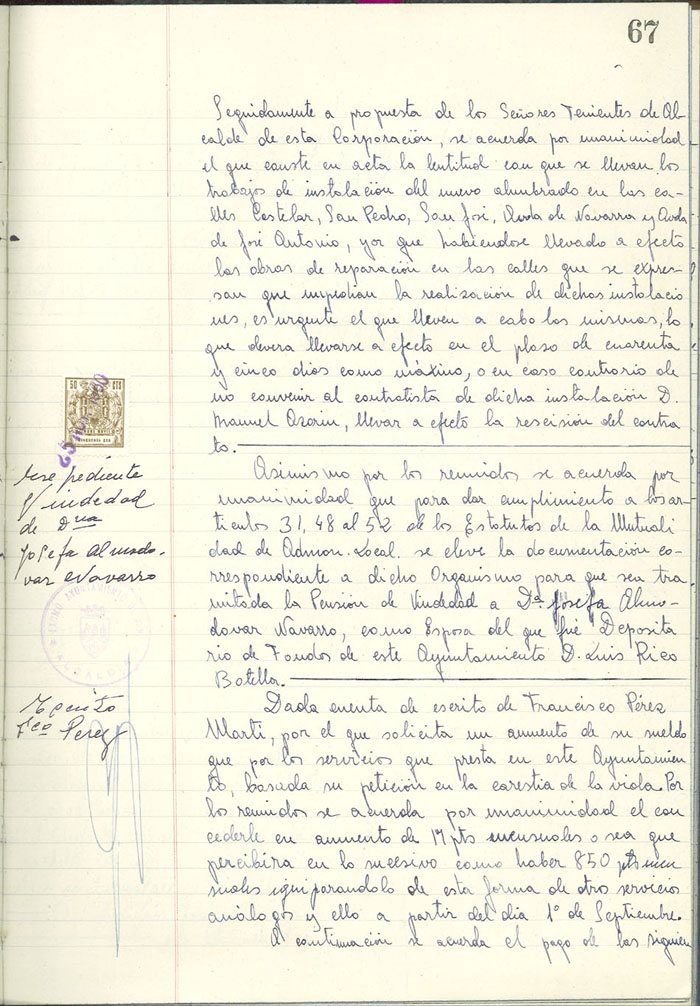 67
Seguidamente a propuesta de los Señores Tenientes de Al-
calde de esta Corporación, se acuerda por unanimidad
el que conste en acta la lentitud con que se llevan los
trabajos de instalación del nuevo alumbrado en las ca-
lles Castelar, San Pedro, San José, Avda de Navarra y Avda
de José Antonio, y or que habiendose llevado a efecto
las obras de reparación en las calles que se expre-
san que impedian la realización de dichas instalacio
nes, es urgente el que lleven a cabo las mismas, lo
que devera llevarse a efecto en el plaso de cuarenta
y cinco dias como máximo, o en caso contrario de
no convenir al contratista de dicha instalación D.
Manuel Azorin, llevar a efecto la rescisión del contra-
to.
50 CTS
Expediente
Viudedad
de Dña
Josefa Almodo-
var Navarro
Asimismo por los reunidos se acuerda por
unanimidad que para dar cumplimiento a los ar-
ticulos 31, 48 al 52 de los Estatutos de la Mutuali
dad de Admon. Local. se eleve la documentación co-
rrespondiente a dicho Organismo para que sea tra
mitada la Pensión de Viudedad a Dª Josefa Almo-
dovar Navarro, como Esposa del que fué Deposita
rio de Fondos de este Ayuntamiento D. Luis Rico
Botella.
Escrito
Fco Perez
Dada cuenta de escrito de Francisco Pérez
Marti, por el que solicita un aumento de su sueldo
que por los servicios que presta en este Ayuntamien
to, basada su petición en la carestia de la vida. Por
los reunidos se acuerda por unanimidad el con
cederle en aumento de 17 pts mensuales o sea que
percibira en lo sucesivo como haber 850 pts men
suales equiparandolo de esta forma de otro servicios
análogos y ello a partir del dia 1º de Septiembre.
A continuación se acuerda el pago de las siguien